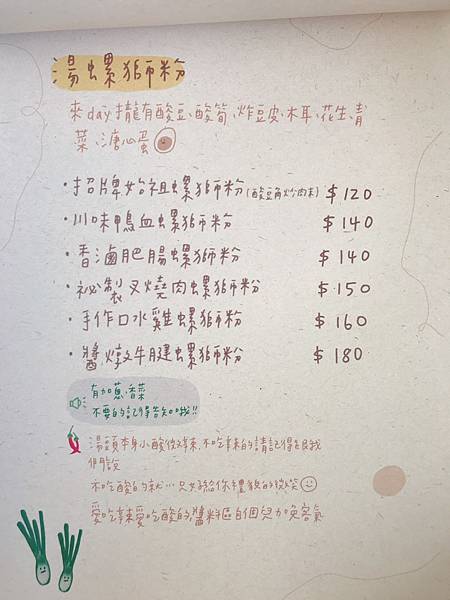 湯螺獅粉
來day攏有酸豆、酸筍、炸豆皮、木耳、花生、青
菜、溏心蛋
·招牌始祖螺獅粉(酸豆角炒肉末) $120
·川味鴨血螺獅粉 $140
·香滷肥腸螺獅粉 $140
·祕製叉燒肉螺獅粉 $150
·手作口水雞螺獅粉 $160
·醬燉牛腱螺獅粉 $180
有加蔥、香菜
不要的記得告知哦!!
湯頭本身小酸微辣、不吃辣的請記得跟我
們說
不吃酸的就…只好給你禮貌的微笑
愛吃辣愛吃酸的,醬料區自個兒加免客氣